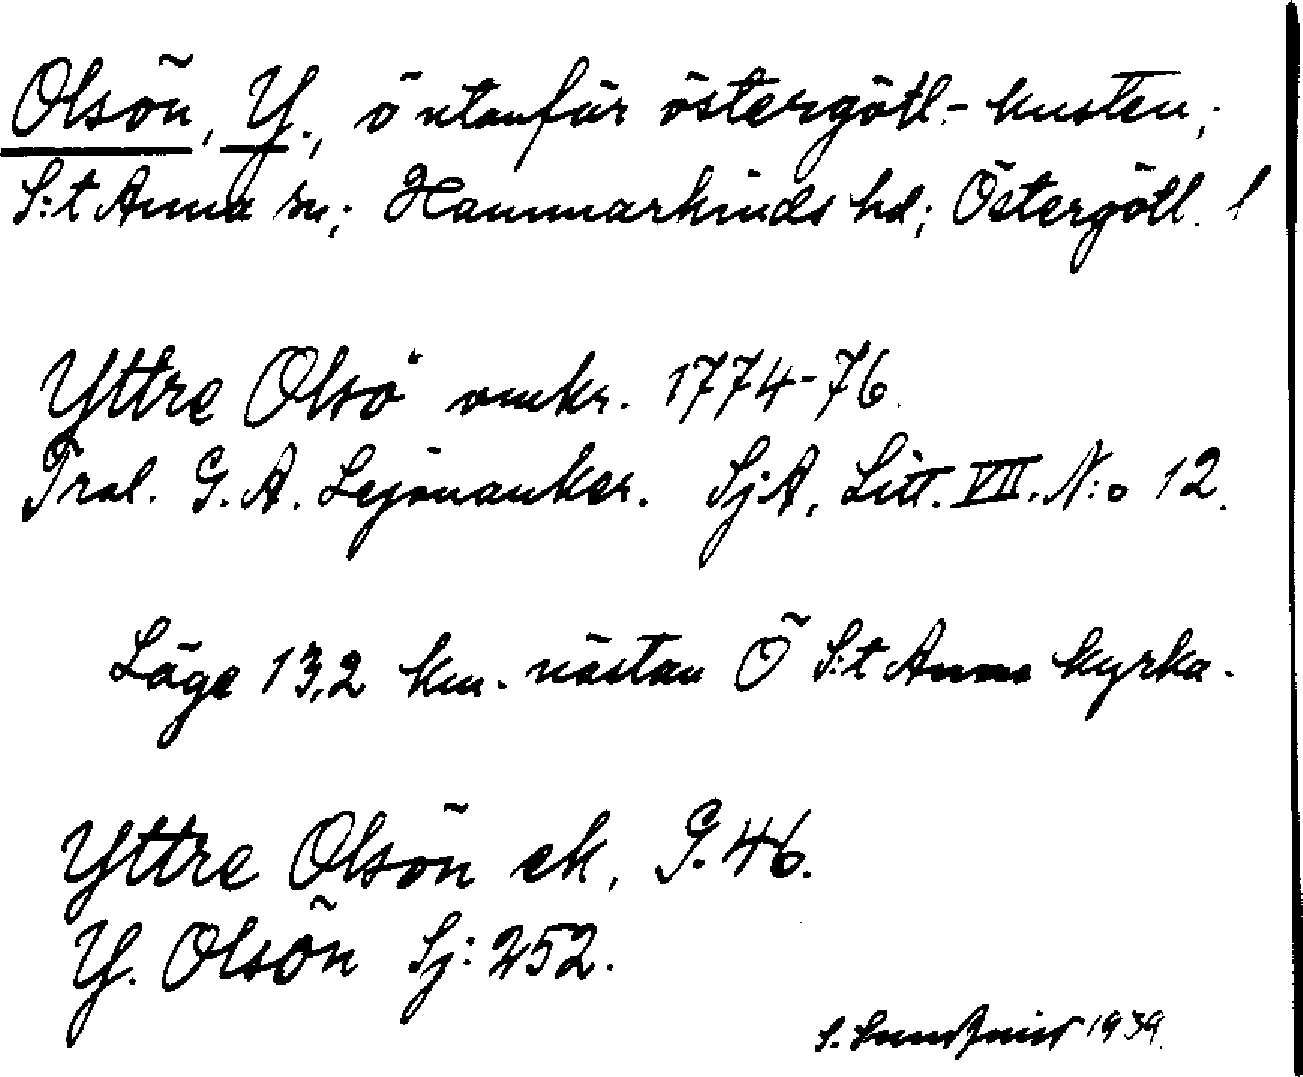 Olsön, Y., ö utanför östergötl.-kusten;
S:t Anna sn; Hammarkinds hd; Östergötl. l
Yttre Olsö omkr. 1774-76.
Trol. G. A. Lejonanker. SjA, Litt. VII. N:o 12.
Läge 13,2 km. nästan Ö S:t Anna kyrka.
Yttre Olsön ek. G. 46.
Y. Olsön Sj: 252.
S. 1939.